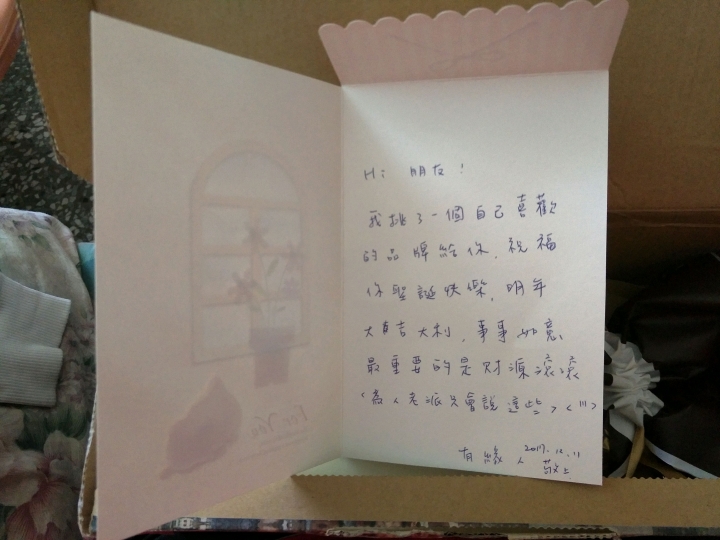 Hi 朋友!
我挑了一個自己喜歡
的品牌給你,祝福
你聖誕快樂,明年
大吉大利,事事如意,
最重要的是財源滾滾
(為人老派只會說這些><|||)
有緣人 2017.12.11
敬上
For You